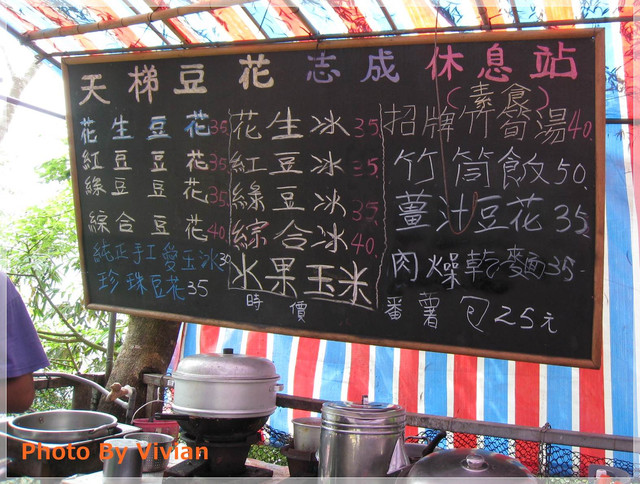 天梯豆花志成休息站
花生豆花35
紅豆豆花35
綠豆豆花35
綜合豆花40
純正手工愛玉冰30
珍珠豆花35
花生冰35
紅豆冰35
綠豆冰35
綜合冰40
水果玉米
時價
(素食)
招牌竹筍湯40
竹筒飯50
薑汁豆花35
肉燥乾麵35
番薯包25元
Photo By Vivian